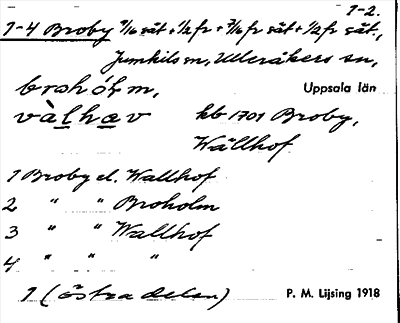 1-2.
1-4 Broby 9/16 sät + 1/2 fr + 7/16 fr sät + 1/2 fr sät,
Jumkils sn, Ulleråkers sn,
broh óɫm, Uppsala län
vàlhæv kb 1701 Broby,
Wällhof
1 Broby el. Wallhof
2 " " Broholm
3 " " Wallhof
4 " " "
1 (östra delen) P. M. Lijsing 1918